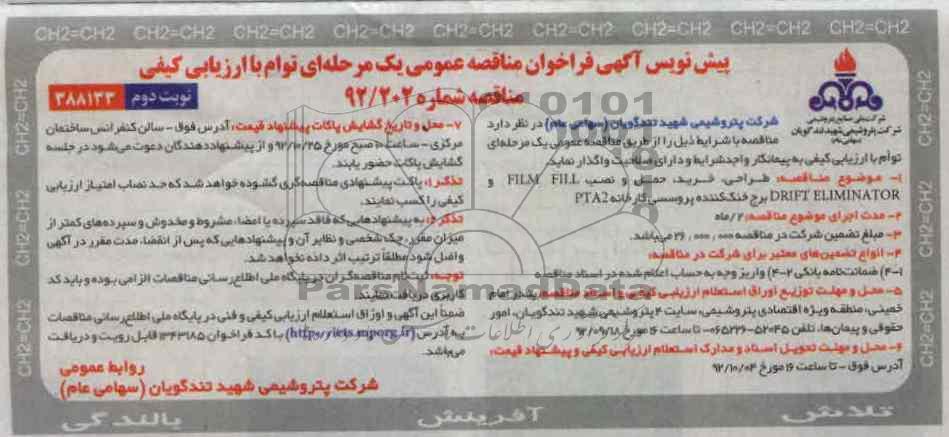 CH2=CH2 CH2=CH2 CH2=CH2 CH2=CH2 CH2=CH2 CH2=CH2 CH2=CH2 CH2=CH2 CH2=CH2
پیش نویس آگهی فراخوان مناقصه عمومی یک مرحله‌ای توام با ارزیابی کیفی
مناقصه شماره ۹۲/۲۰۲
نوبت دوم ۳۸۸۱۳۳
شرکت ملی صنایع پتروشیمی
شرکت پتروشیمی شهید تندگویان
(سهامی عام)
شرکت پتروشیمی شهید تندگویان (سهامی عام) در نظر دارد
مناقصه با شرایط ذیل را از طریق مناقصه عمومی یک مرحله‌ای
توأم با ارزیابی کیفی به پیمانکار واجد شرایط و دارای صلاحیت واگذار نماید.
۱- موضوع مناقصه: طراحی، خرید، حمل و نصب FILM FILL و
DRIFT ELIMINATOR برج خنک‌کننده پروسسی کارخانه PTA2
۲- مدت اجرای موضوع مناقصه: ۲/ماه
۳- مبلغ تضمین شرکت در مناقصه ۲۶,۰۰۰,۰۰۰ می‌باشد.
۴- انواع تضمین‌های معتبر برای شرکت در مناقصه:
(۴-۱) ضمانت‌نامه بانکی (۴-۲) واریز وجه به حساب اعلام شده در اسناد مناقصه
۵- محل و مهلت توزیع اوراق استعلام ارزیابی کیفی و اسناد مناقصه: بندر امام
خمینی، منطقه ویژه اقتصادی پتروشیمی، سایت ۴ پتروشیمی شهید تندگویان، امور
حقوقی و پیمان‌ها، تلفن ۵۲۰۴۵-۰۶۵۲۲۶ تا ساعت ۱۶ مورخ ۹۲/۰۹/۱۸
۶- محل و مهلت تحویل اسناد و مدارک استعلام ارزیابی کیفی و پیشنهاد قیمت:
آدرس فوق - تا ساعت ۱۶ مورخ ۹۲/۱۰/۰۴
۷- محل و تاریخ گشایش پاکات پیشنهاد قیمت: آدرس فوق - سالن کنفرانس ساختمان
مرکزی - ساعت ۱۰ صبح مورخ ۹۲/۱۰/۲۵ و از پیشنهاددهندگان دعوت می‌شود در جلسه
گشایش پاکات حضور یابند.
تذکر ۱: پاکت پیشنهادی مناقصه‌گری گشوده خواهد شد که حد نصاب امتیاز ارزیابی
کیفی را کسب نمایند.
تذکر ۲: به پیشنهادهایی که فاقد سپرده یا امضا، مشروط و مخدوش و سپرده‌های کمتر از
میزان مقرر، چک شخصی و نظایر آن و پیشنهادهایی که پس از انقضا، مدت مقرر در آگهی
واصل شود مطلقاً ترتیب اثر داده نخواهد شد.
توجه: ثبت‌نام مناقصه‌گران در پایگاه ملی اطلاع‌رسانی مناقصات الزامی بوده و باید کد
کاربری دریافت نمایند.
ضمناً این آگهی و اوراق استعلام ارزیابی کیفی و فنی در پایگاه ملی اطلاع‌رسانی مناقصات
به آدرس (http://iets.mporg.ir) با کد فراخوان ۱۳۴۳۱۸۵ قابل رویت و دریافت
می‌باشد.
روابط عمومی
شرکت پتروشیمی شهید تندگویان (سهامی عام)
تلاش آفرینش بالندگی
ParsNamadData
0101